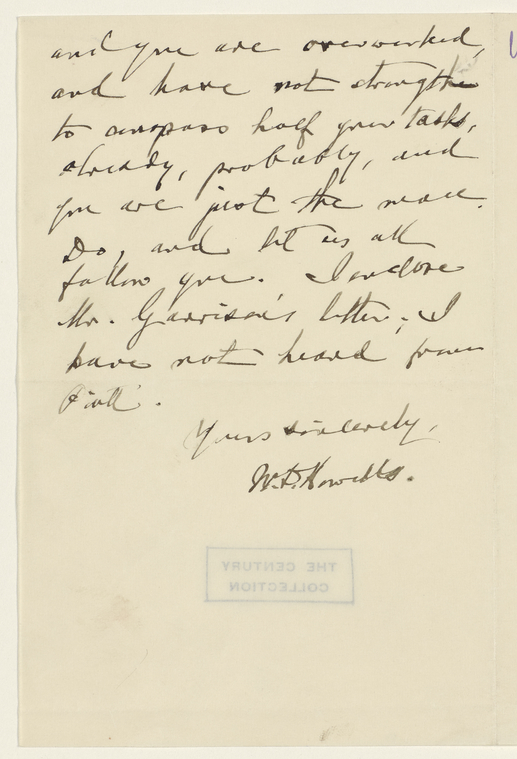 and you are overworked,
and have not strength
to compass half your tasks,
already, probably, and
you are just the man.
Do, and let us all
follow you. I enclose
Mr. Garrison's letter; I
have not heard from
Yours sincerely,
W.D. Howells.
THE CENTURY
COLLECTION